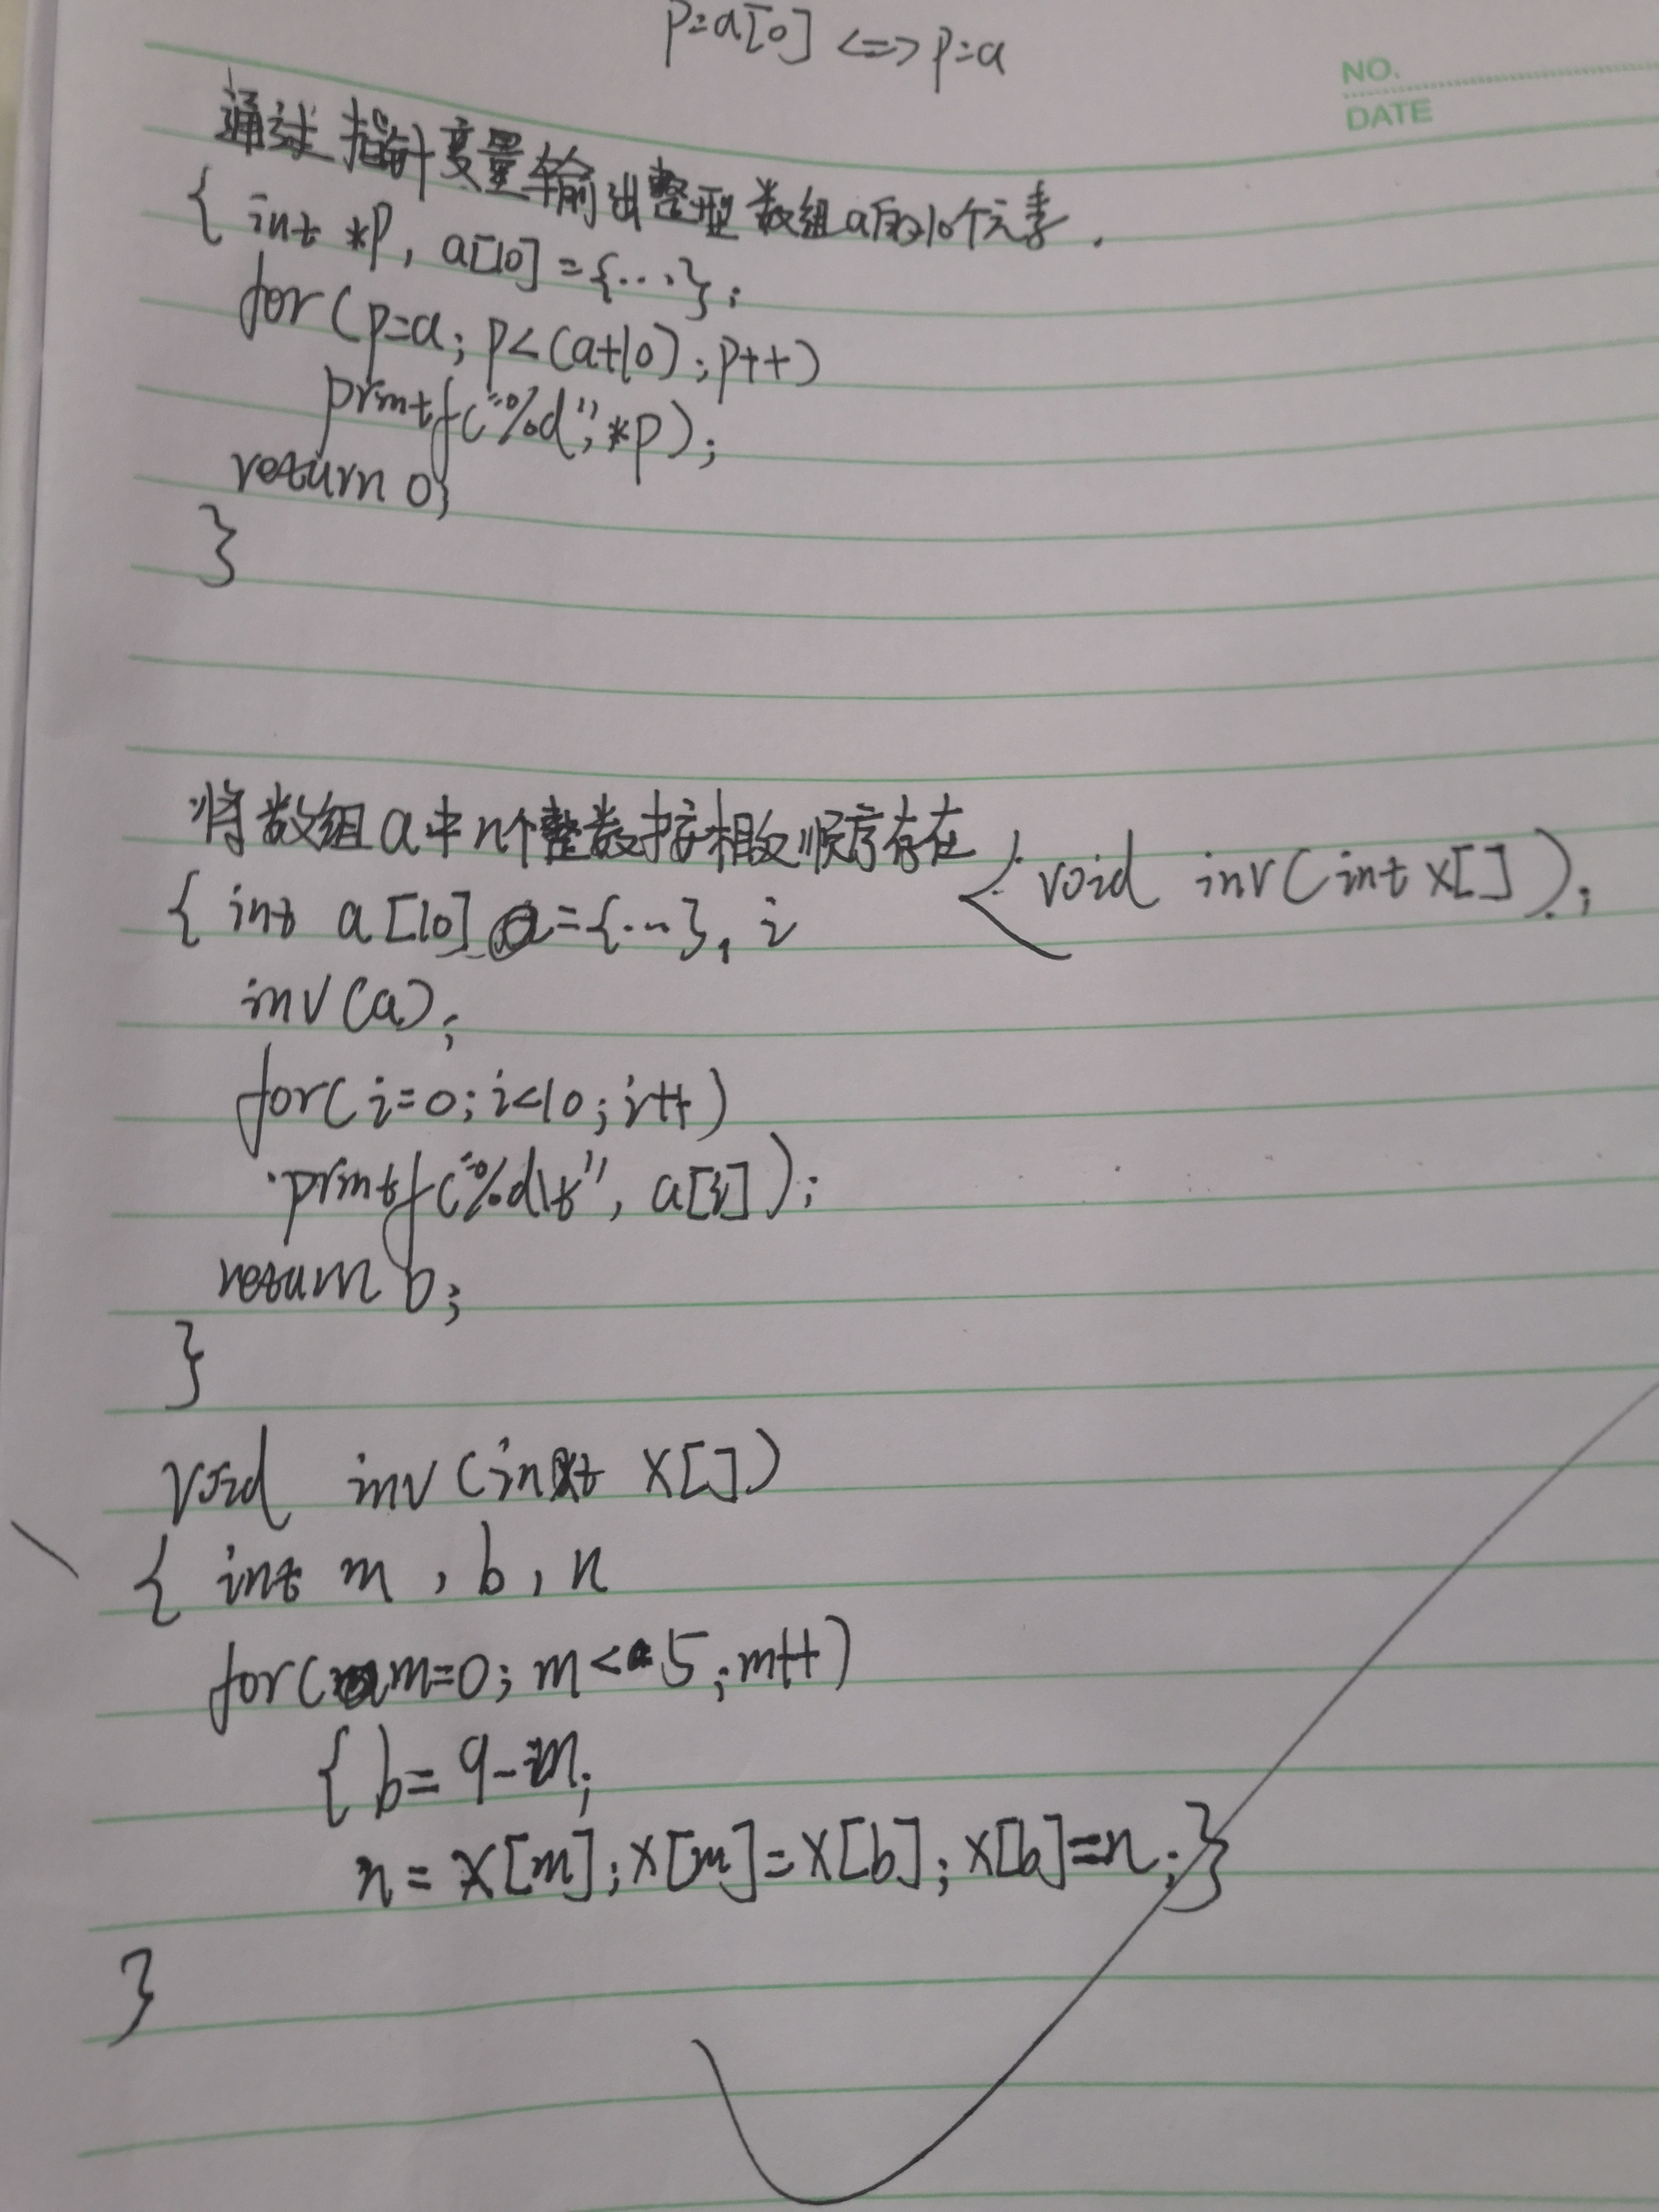 p=a[0] <=> p=a
NO.
DATE
通过指针变量输出整型数组a的10个元素.
{ int *p, a[10]={...};
for(p=a; p<(a+10); p++)
printf("%d", *p);
return 0;
}
将数组a中n个整数按相反顺序存在
void inv(int x[]);
{ int a[10]={...}, i
inv(a);
for(i=0; i<10; i++)
printf("%d\t", a[i]);
return 0;
}
void inv(int x[])
{ int m, b, n
for(m=0; m<5; m++)
{ b=9-m;
n=x[m]; x[m]=x[b]; x[b]=n; }
}